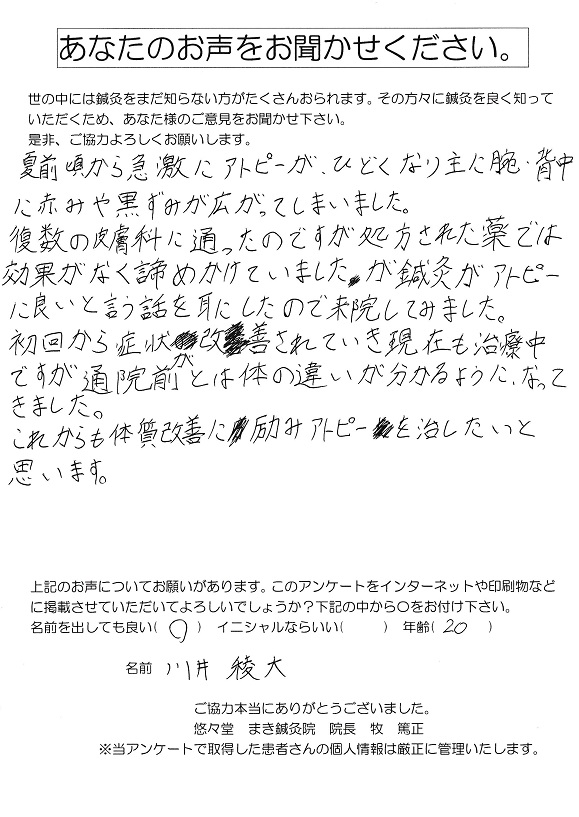 あなたのお声をお聞かせください。
世の中には鍼灸をまだ知らない方がたくさんおられます。その方々に鍼灸を良く知って
いただくため、あなた様のご意見をお聞かせ下さい。
是非、ご協力よろしくお願いします。
夏前頃から急激にアトピーが、ひどくなり主に腕・背中
に赤みや黒ずみが広がってしまいました。
復数の皮膚科に通ったのですが処方された薬では
効果がなく諦めかけていましたが鍼灸がアトピー
に良いと言う話を耳にしたので来院してみました。
初回から症状が改善されていき現在も治療中
ですが通院前とは体の違いが分かるように、なって
きました。
これからも体質改善に励みアトピーを治したいと
思います。
上記のお声についてお願いがあります。このアンケートをインターネットや印刷物など
に掲載させていただいてよろしいでしょうか?下記の中から○をお付け下さい。
名前を出しても良い( ○ ) イニシャルならいい( ) 年齢( 20 )
名前 川井 稜大
ご協力本当にありがとうございました。
悠々堂 まき鍼灸院 院長 牧 篤正
※当アンケートで取得した患者さんの個人情報は厳正に管理いたします。